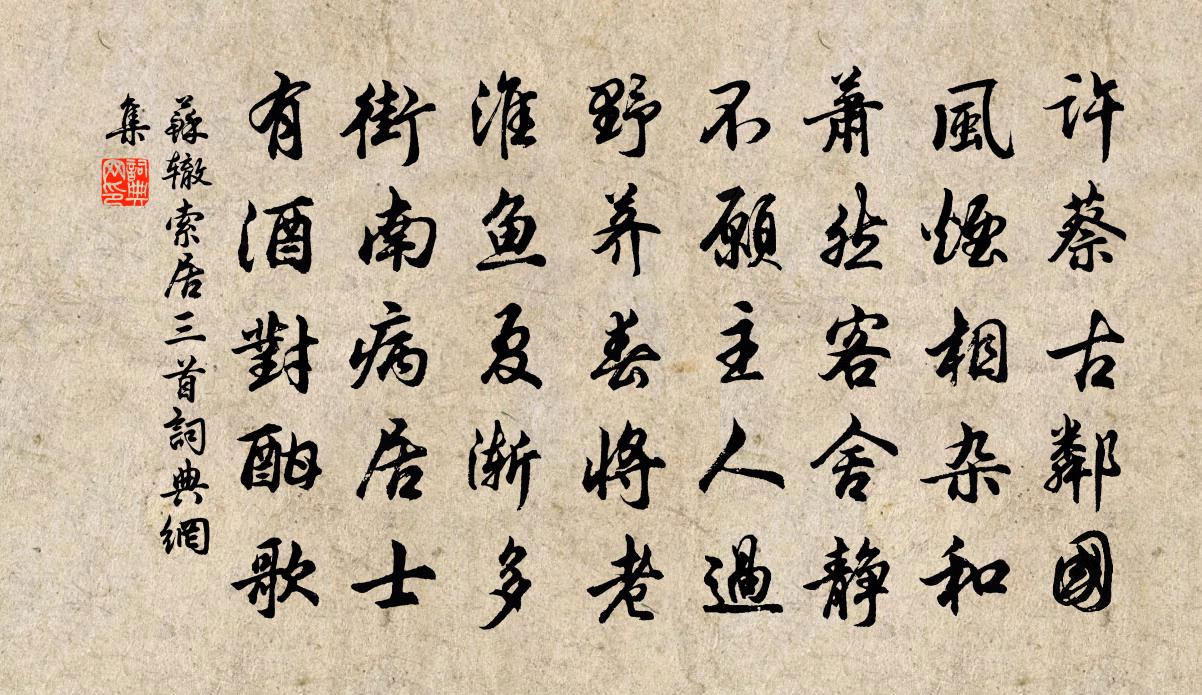 許蔡古鄰國
風煙相杂和
萧然客舍静
不願主人過
野荞春將老
淮鱼夏渐多
街南病居士
有酒對酣歌
蘇辙索居三首詞典網
集
詞典网印